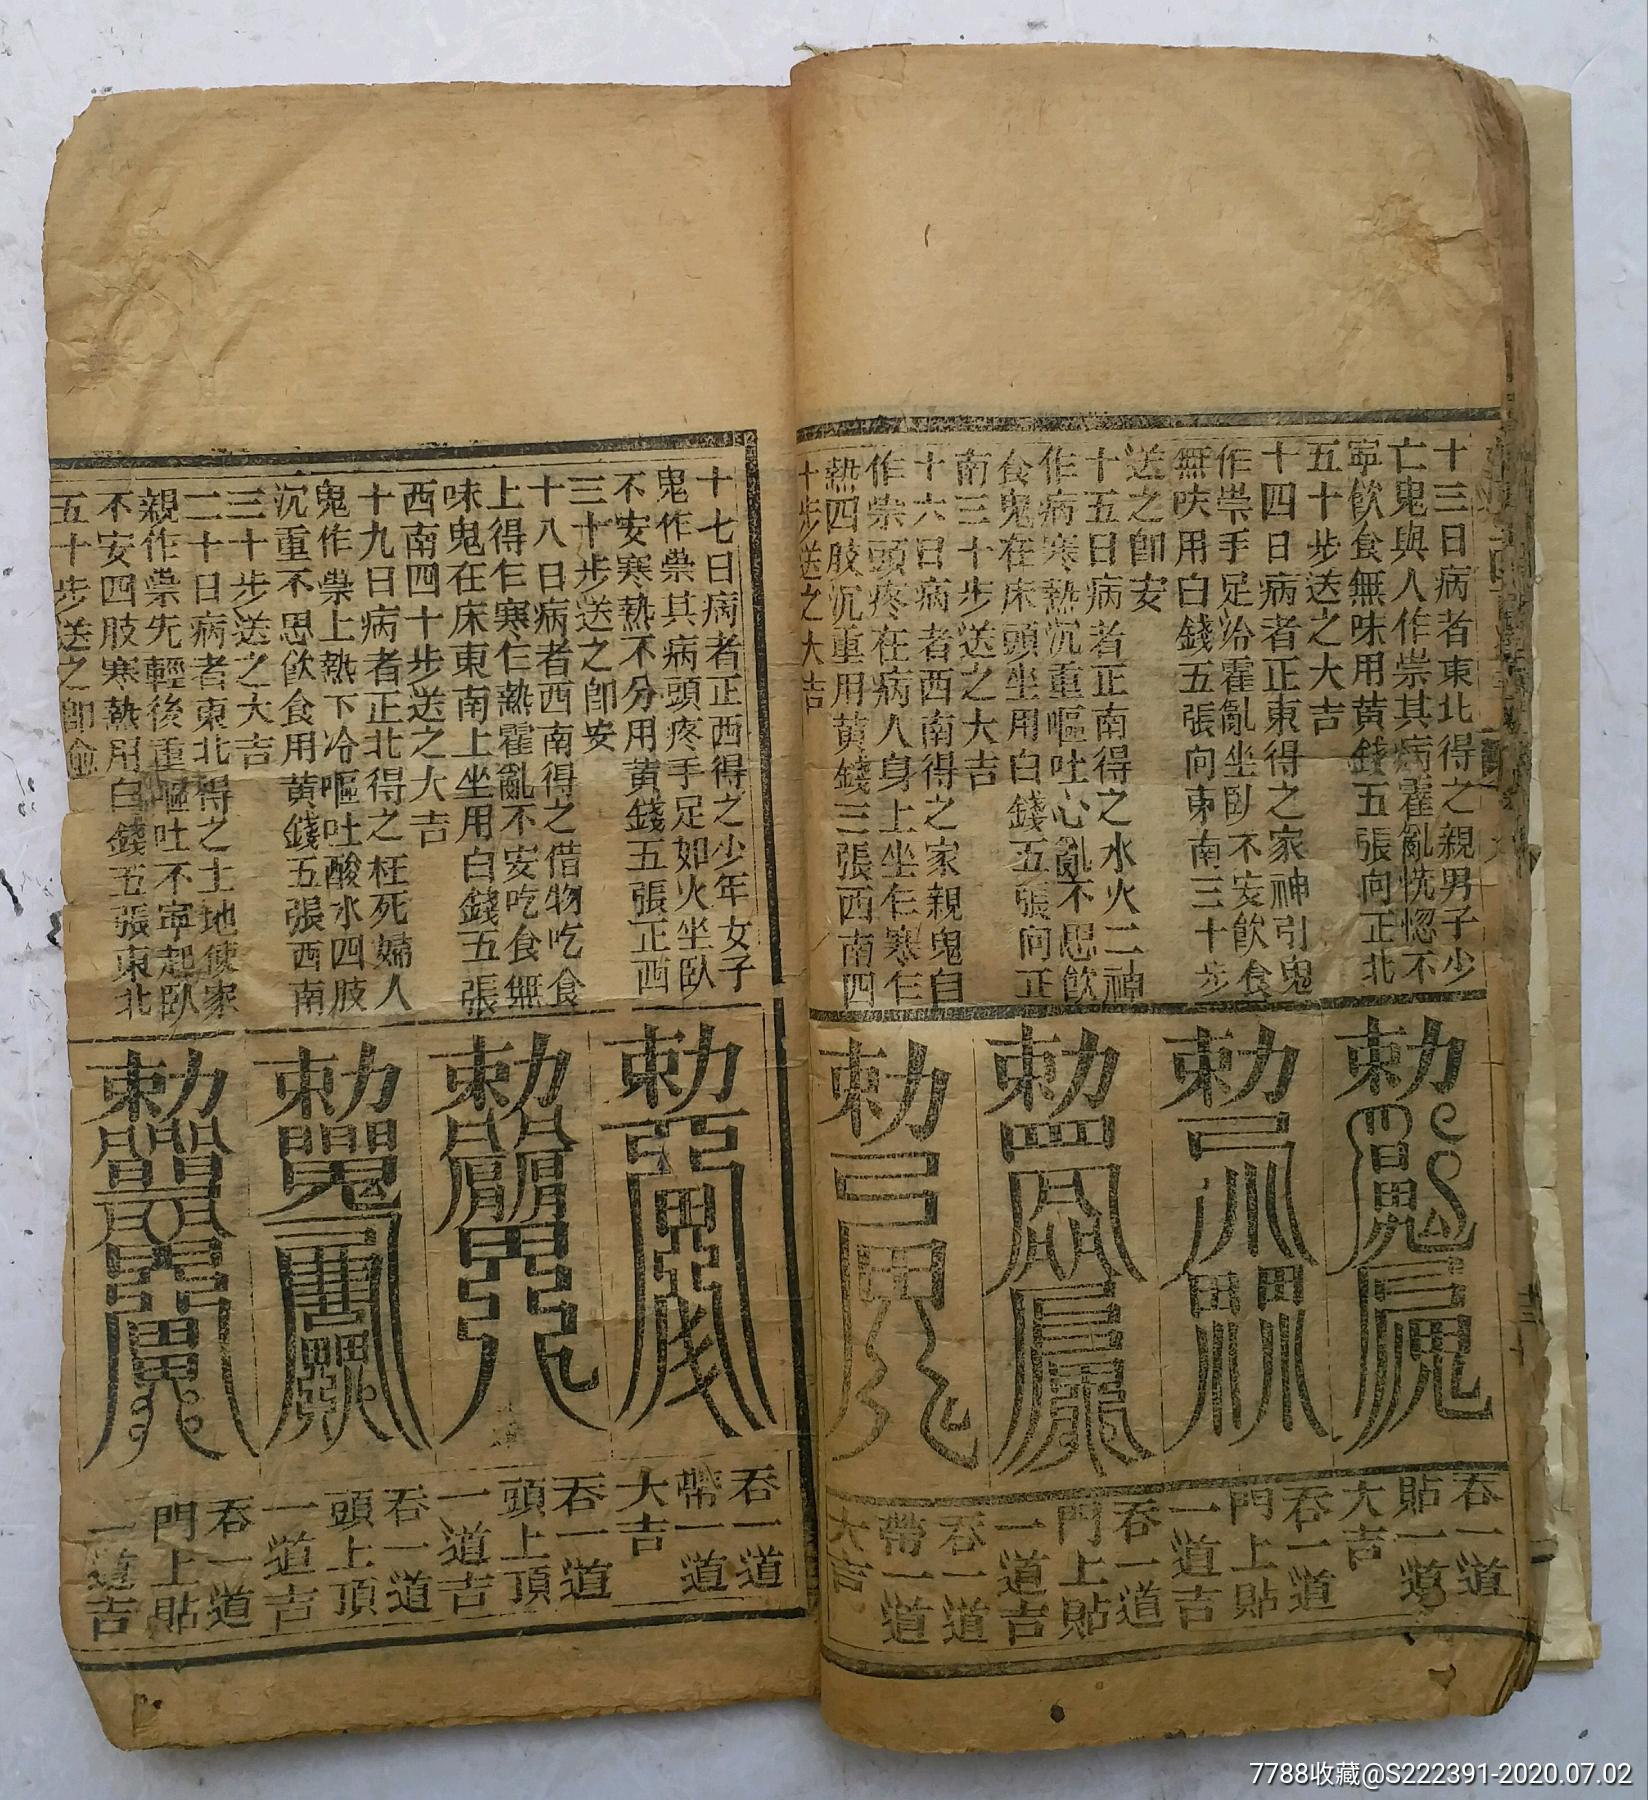 十三日病者東北得之親男子少
亡鬼與人作祟其病霍亂恍惚不
寧飲食無味用黃錢五張向正北
五十步送之大吉
十四日病者正東得之家神引鬼
作祟手足冷霍亂坐卧不安飲食
無味用白錢五張向東南三十步
送之卽安
十五日病者正南得之水火二神
作病寒熱沉重嘔吐心亂不思飲
食鬼在床頭坐用白錢五張向正
南三十步送之大吉
十六日病者西南得之家親鬼自
作祟頭疼在病人身上坐乍寒乍
熱四肢沉重用黃錢三張西南四
十步送之大吉
勅
勅
勅
勅
吞一道
貼一道
大吉
吞一道
門上貼
一道吉
吞一道
門上貼
一道吉
吞一道
帶一道
大吉
十七日病者正西得之少年女子
鬼作祟其病頭疼手足如火坐卧
不安寒熱不分用黃錢五張正西
三十步送之卽安
十八日病者西南得之借物吃食
上得乍寒乍熱霍亂不安吃食無
味鬼在床東南上坐用白錢五張
西南四十步送之大吉
十九日病者正北得之枉死婦人
鬼作祟上熱下冷嘔吐酸水四肢
沉重不思飲食用黃錢五張西南
三十步送之大吉
二十日病者東北得之土地使家
親作祟先輕後重嘔吐不寧起卧
不安四肢寒熱用白錢五張東北
五十步送之卽愈
勅
勅
勅
勅
吞一道
帶一道
大吉
吞一道
頭上頂
一道吉
吞一道
頭上頂
一道吉
吞一道
門上貼
一道吉
7788收藏@S222391-2020.07.02